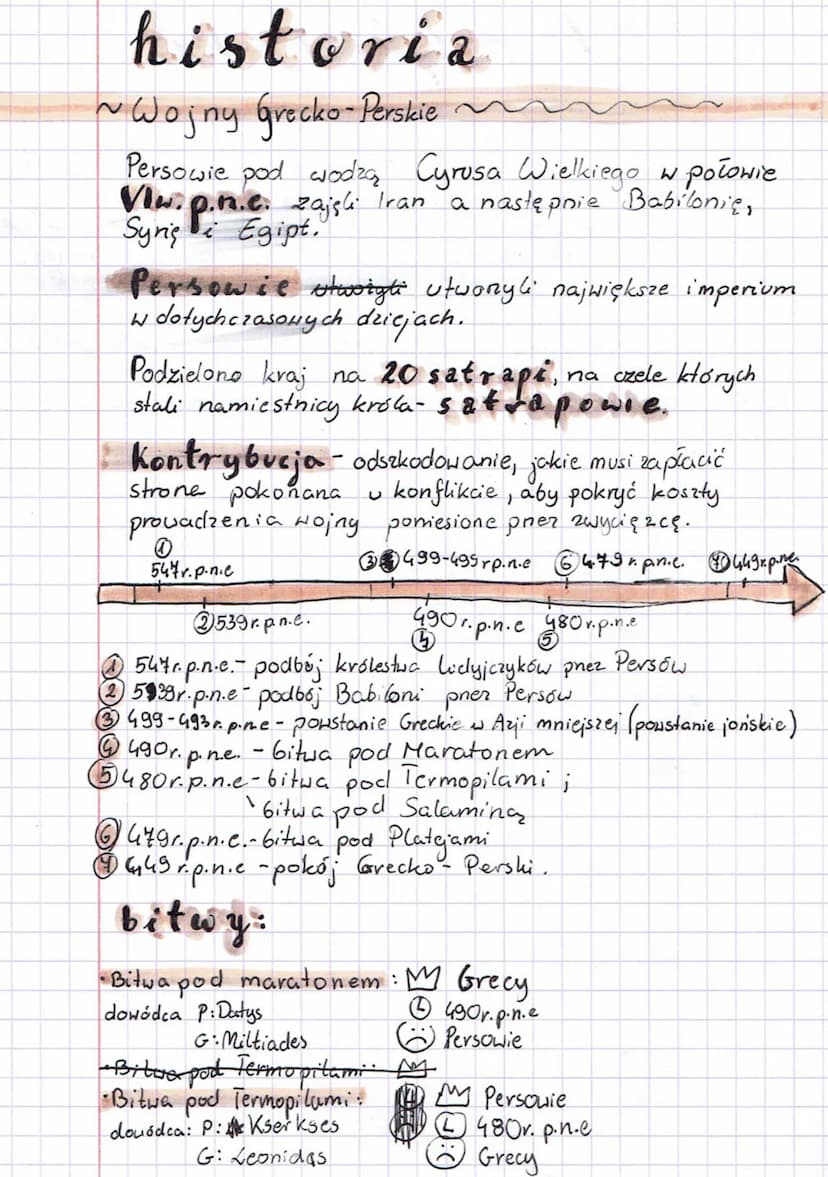 historia
~ Wojny Grecko-Perskie
Persowie pod wodzą Cyrusa Wielkiego w połowie
VIw. p.n.e. zajęli Iran a następnie Babilonię,
Syrię i Egipt.
Persowie utworzyli największe imperium
w dotychczasowych dziejach.
Podzielono kraj na 20 satrapi, na czele których
stali namiestnicy króla - satrapowie.
Kontrybucja - odszkodowanie, jakie musi zapłacić
strona pokonana w konflikcie, aby pokryć koszty
prowadzenia wojny poniesione przez zwycięzcę.
① 547r.p.n.e
③ 499-495r p.n.e
⑥ 479r. p.n.e.
⑦ 449r.p.n.e.
② 539r.p.n.e.
490r.p.n.e ④
480r.p.n.e ⑤
① 547r.p.n.e. - podbój królestwa Lidyjczyków przez Persów
② 539r.p.n.e - podbój Babiloni przez Persów
③ 499-493r.p.n.e - powstanie Greckie w Azji mniejszej (powstanie jońskie)
④ 490r.p.n.e. - bitwa pod Maratonem
⑤ 480r.p.n.e - bitwa pod Termopilami ;
bitwa pod Salaminą
⑥ 479r.p.n.e. - bitwa pod Platejami
⑦ 449r.p.n.e - pokój Grecko - Perski.
bitwy:
• Bitwa pod maratonem: Grecy
dowódca P: Datys 490r.p.n.e
G: Miltiades Persowie
• Bitwa pod Termopilami:
• Bitwa pod Termopilami: Persowie
dowódca: P: Kserkses 480r. p.n.e
G: Leonidas Grecy